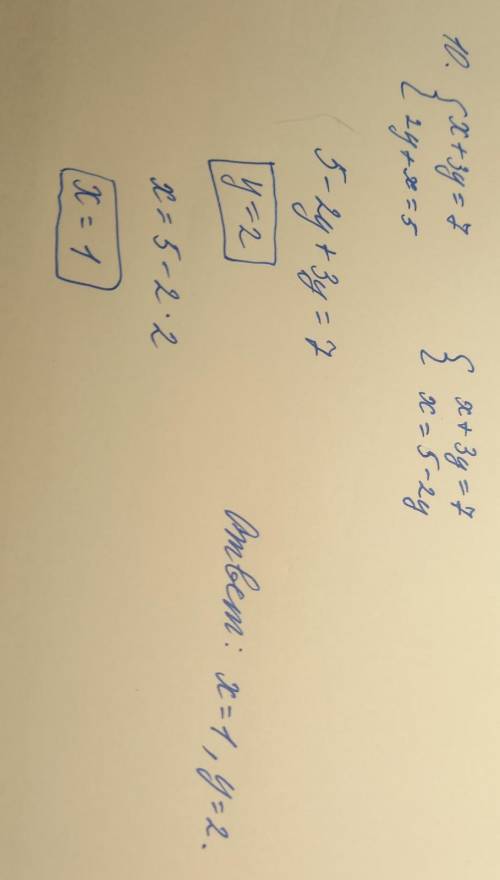 10. { x + 3y = 7
2y + x = 5
{ x + 3y = 7
x = 5 - 2y
5 - 2y + 3y = 7
y = 2
x = 5 - 2 · 2
x = 1
Ответ: x = 1, y = 2.